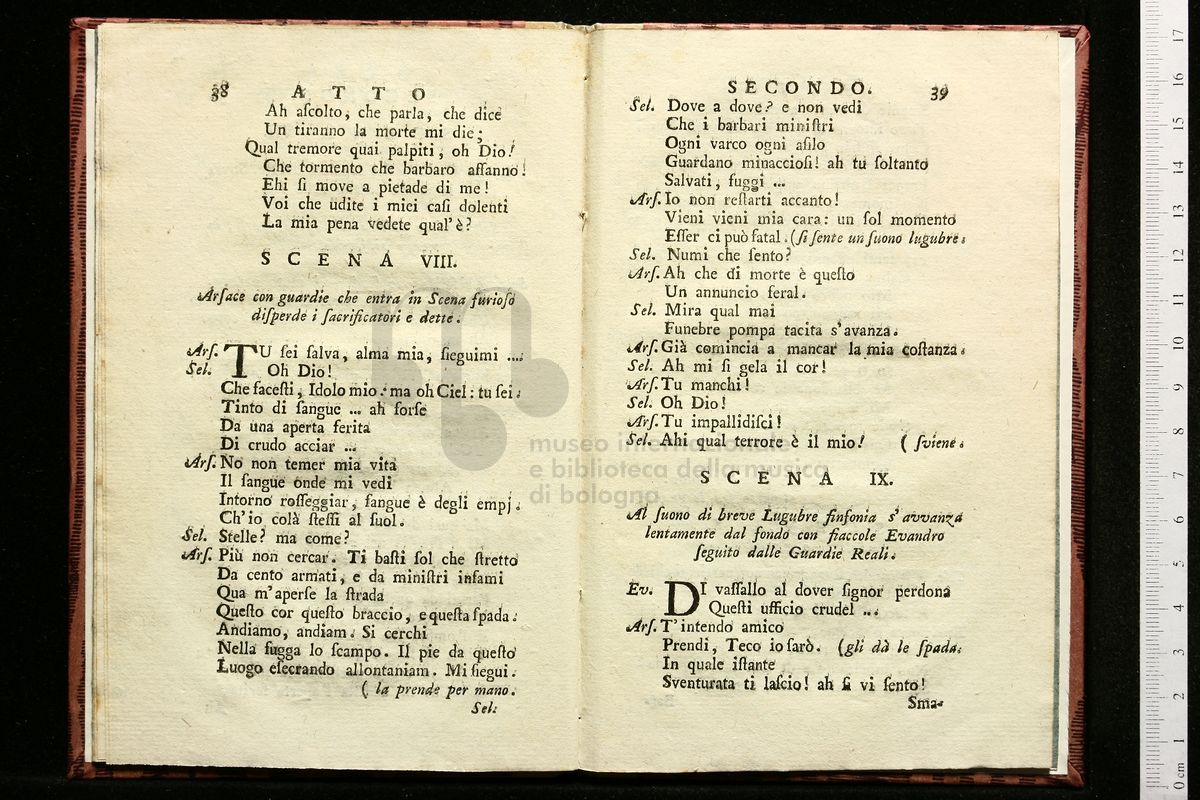 38 ATTO
Ah aſcolto, che parla, che dice
Un tiranno la morte mi die;
Qual tremore quai palpiti, oh Dio!
Che tormento che barbaro affanno!
Ehi ſi move a pietade di me!
Voi che udite i miei caſi dolenti
La mia pena vedete qual'è?
SCENA VIII.
Arſace con guardie che entra in Scena furioſo
diſperde i ſacrificatori e dette.
Arſ. TU ſei ſalva, alma mia, ſieguimi ....
Sel. Oh Dio!
Che faceſti, Idolo mio: ma oh Ciel: tu ſei:
Tinto di ſangue ... ah forſe
Da una aperta ferita
Di crudo acciar ...
Arſ. No non temer mia vita
Il ſangue onde mi vedi
Intorno roſſeggiar, ſangue è degli empj.
Ch'io colà ſteſſi al ſuol.
Sel. Stelle? ma come?
Arſ. Più non cercar. Ti baſti ſol che ſtretto
Da cento armati, e da miniſtri infami
Qua m'aperſe la ſtrada
Queſto cor queſto braccio, e queſta ſpada:
Andiamo, andiam. Si cerchi
Nella fugga lo ſcampo. Il pie da queſto
Luogo eſecrando allontaniam. Mi ſiegui.
( la prende per mano.
Sel.
SECONDO. 39
Sel. Dove a dove? e non vedi
Che i barbari miniſtri
Ogni varco ogni aſilo
Guardano minaccioſi! ah tu ſoltanto
Salvati, fuggi ...
Arſ. Io non reſtarti accanto!
Vieni vieni mia cara: un ſol momento
Eſſer ci può fatal. (ſi ſente un ſuono lugubre.
Sel. Numi che ſento?
Arſ. Ah che di morte è queſto
Un annuncio feral.
Sel. Mira qual mai
Funebre pompa tacita s'avanza.
Arſ. Già comincia a mancar la mia coſtanza.
Sel. Ah mi ſi gela il cor!
Arſ. Tu manchi!
Sel. Oh Dio!
Arſ. Tu impallidiſci!
Sel. Ahi qual terrore è il mio! ( ſviene.
SCENA IX.
Al ſuono di breve Lugubre ſinfonia s'avvanza
lentamente dal fondo con fiaccole Evandro
ſeguito dalle Guardie Reali.
Ev. DI vaſſallo al dover ſignor perdona
Queſti ufficio crudel ...
Arſ. T'intendo amico
Prendi, Teco io ſarò. (gli dà le ſpada.
In quale iſtante
Sventurata ti laſcio! ah ſi vi ſento!
Sma-
museo internazionale
e biblioteca della musica
di bologna
0 cm 1 2 3 4 5 6 7 8 9 10 11 12 13 14 15 16 17